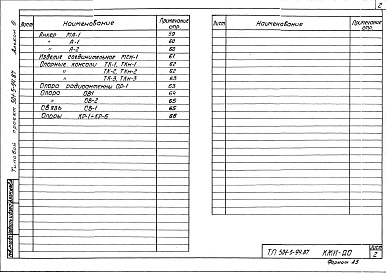 2
Альбом III
Типовой проект 501-5-94.87
Лист Наименование Примечание стр.
Анкер МА-1 59
" А-1 60
" А-2 60
Изделие соединительное МСН-1 61
Опорные консоли ТК-1, ТКн-1 62
" ТК-2, ТКн-2 62
" ТК-3, ТКн-3 63
Опора радиоантенны ОР-1 63
Опора ОВ1 64
" ОБ-2 65
Связь СВ-1 65
Опоры КР-1÷КР-6 66
Лист Наименование Примечание стр.
ТП 501-5-94.87 КЖИ-ДО
Лист
2
Формат А3